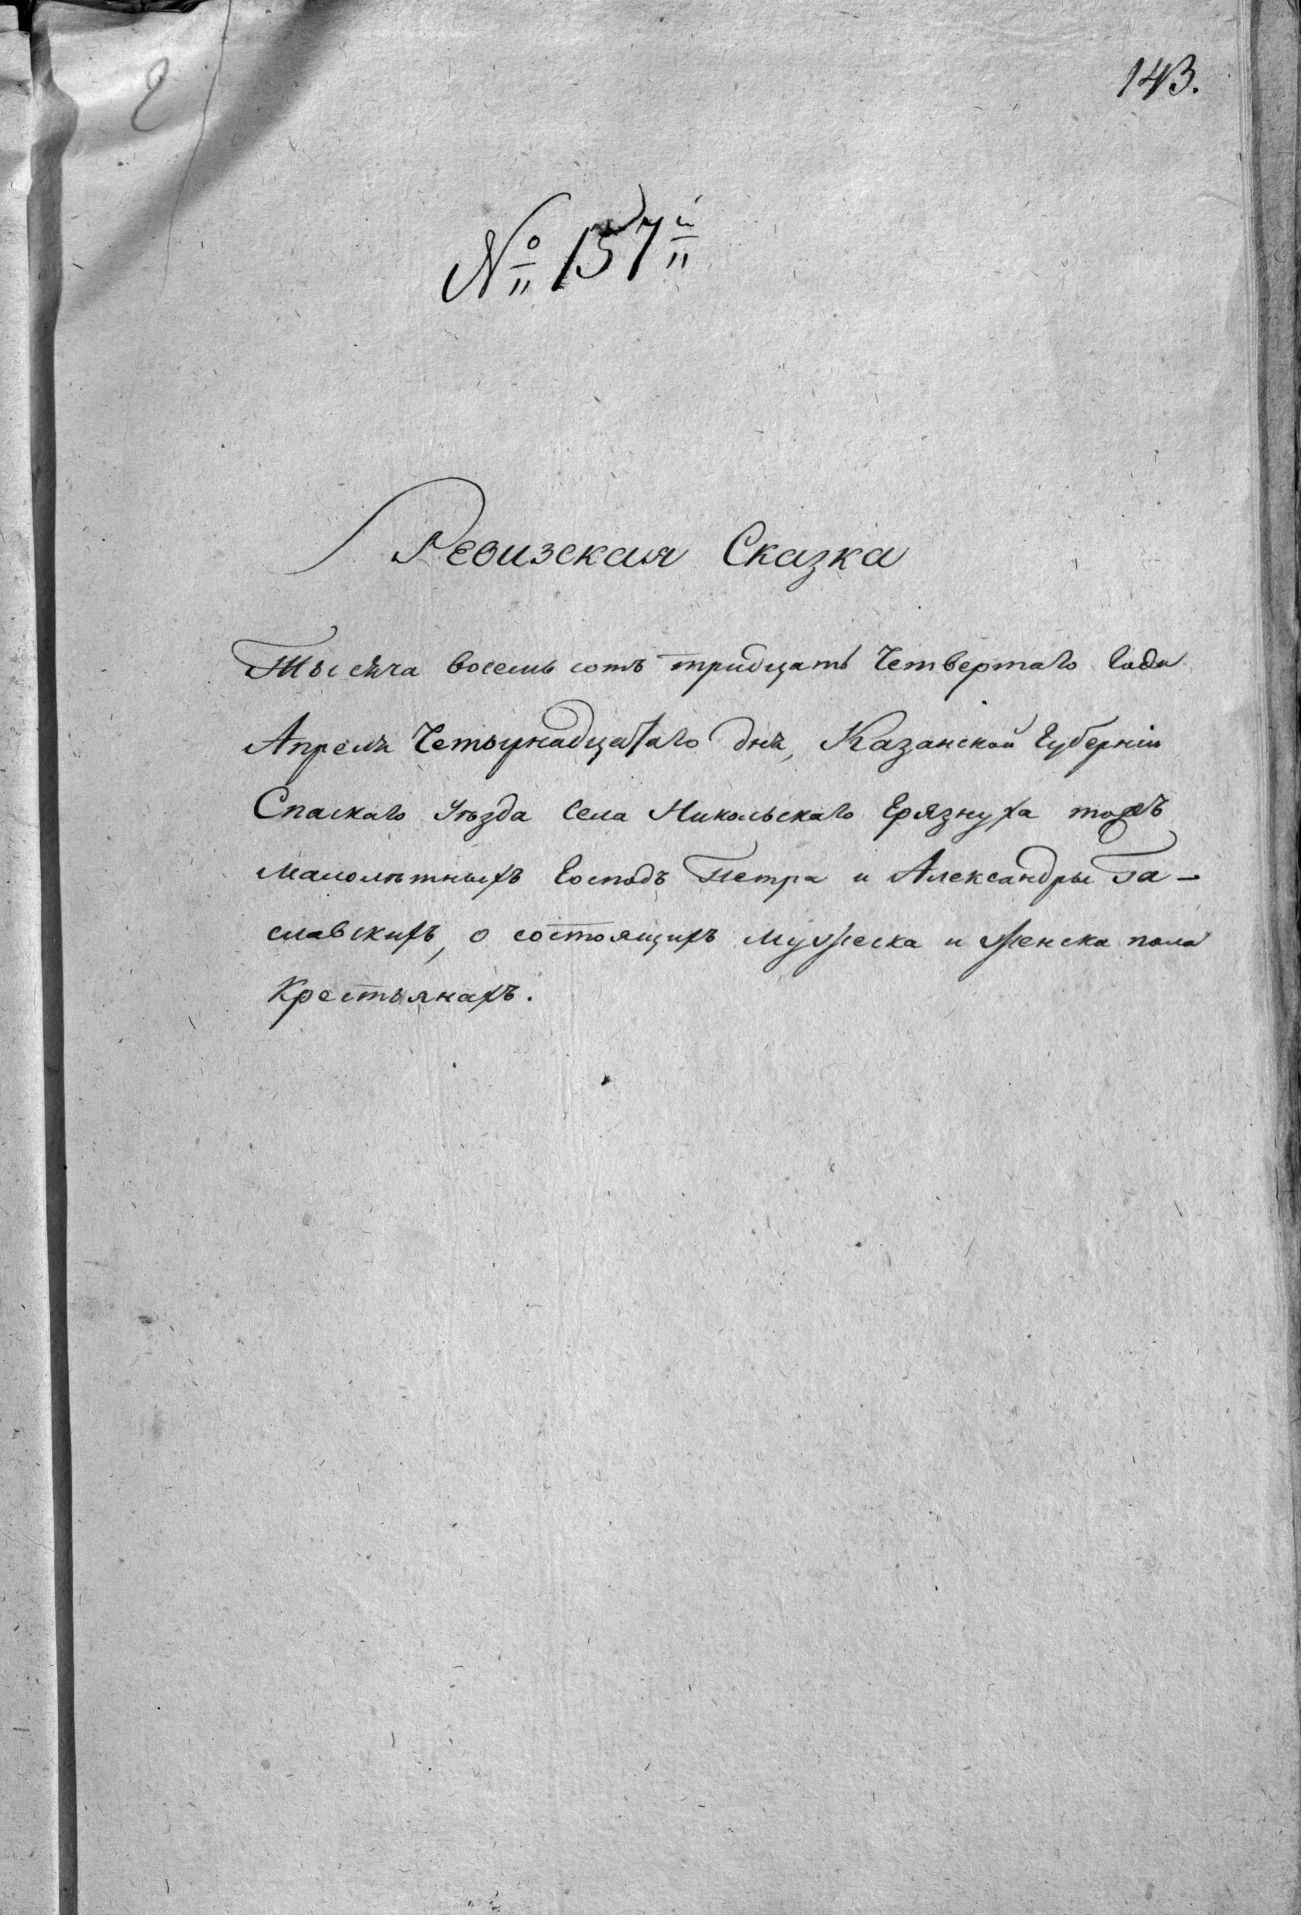 143.
№ 157й
Ревизская Сказка
Тысяча восемь сотъ тридцать Четвертаго Года
Апреля Четырнадцатаго дня, Казанской Губерніи
Спаскаго Уѣзда Села Никольскаго Грязнуха тожъ
малолѣтныхъ Господъ Петра и Александры Га-
славскихъ, о состоящихъ мужеска и женска пола
Крестьянахъ.